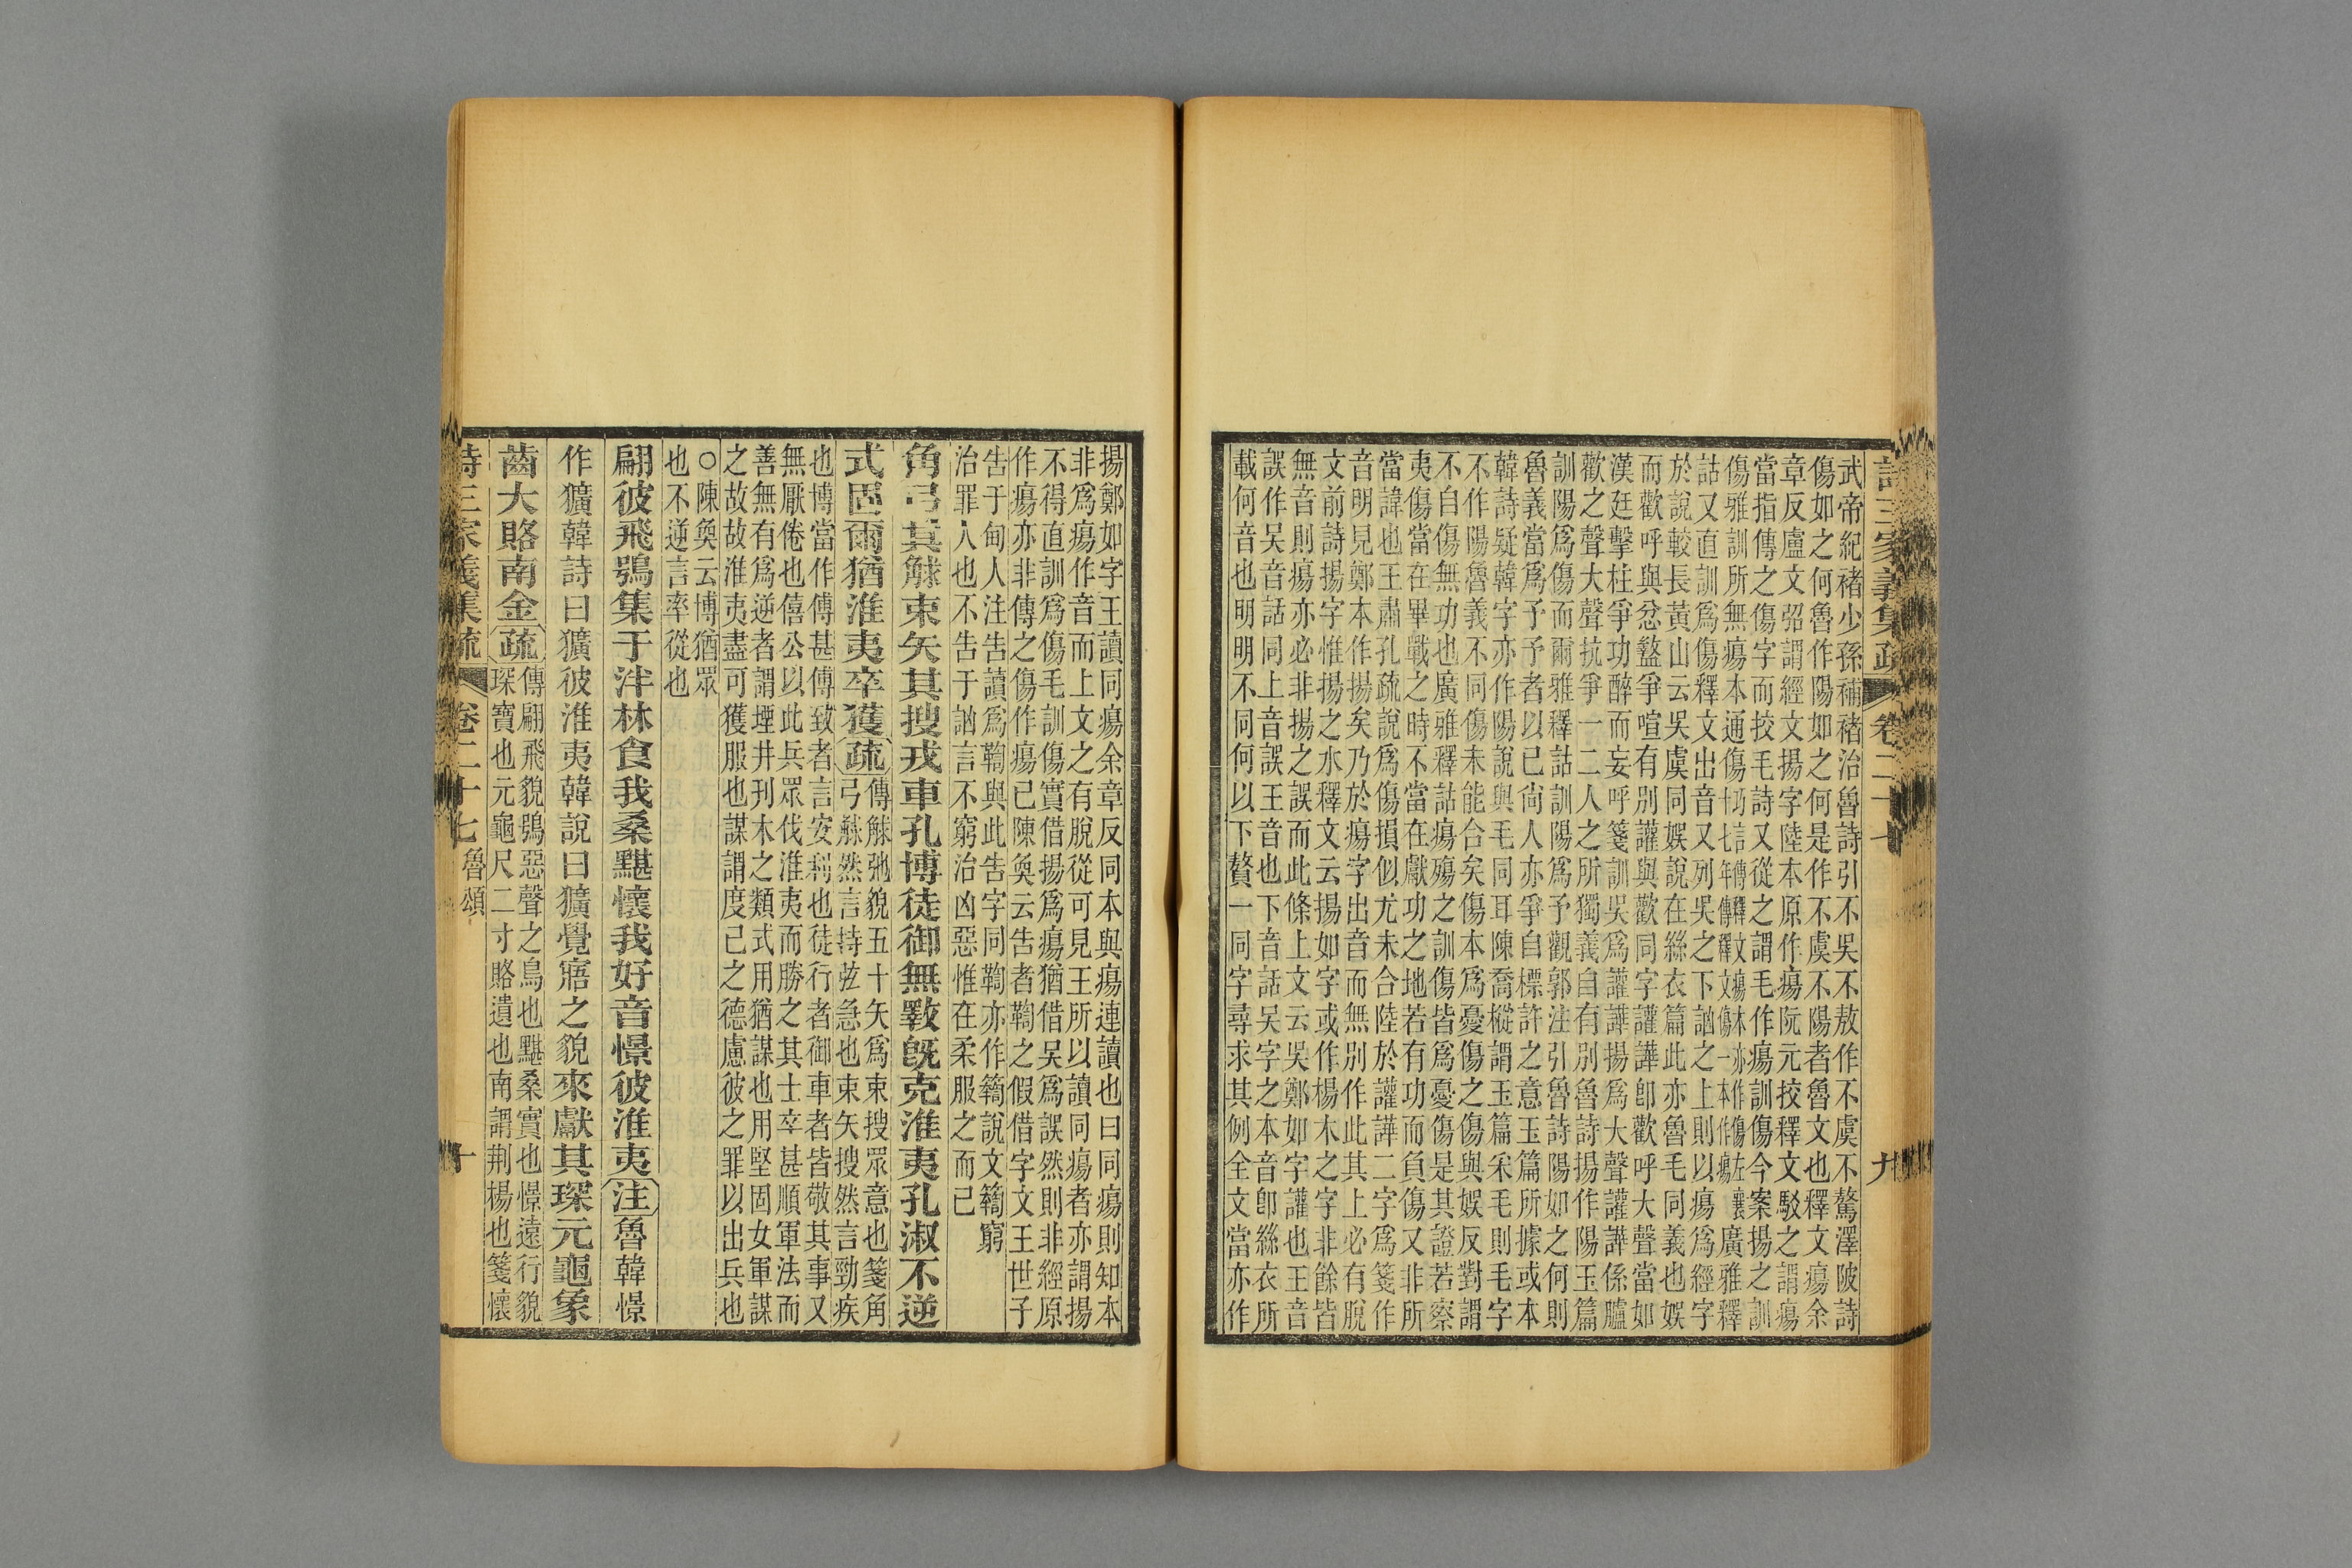 武帝紀褚少孫補褚治魯詩引不吳不敖作不虞不驁澤陂詩
傷如之何魯作陽如之何是作不虞不陽者魯文也釋文瘍余
章反盧文弨謂經文揚字陸本原作瘍阮元挍釋文駁之謂瘍
當指傳之傷字而挍毛詩又從之謂毛作瘍訓傷今案揚之訓
傷雅訓所無瘍本通傷
廣雅釋
詁又直訓爲傷釋文出音又列吳之下訩之上則以瘍爲經字
於說較長黃山云吳虞同娛說在絲衣篇此亦魯毛同義也娛
而歡呼與忿盭爭喧有別讙與歡同字讙譁卽歡呼大聲當如
漢廷擊柱爭功醉而妄呼箋訓吳爲讙譁揚爲大聲讙譁係臚
歡之聲大聲抗爭一二人之所獨義自有別魯詩揚作陽玉篇
訓陽爲傷而爾雅釋詁訓陽爲予觀郭注引魯詩陽如之何則
魯義當爲予予者以已尙人亦爭自標許之意玉篇所據或本
韓詩疑韓字亦作陽說與毛同耳陳喬樅謂玉篇采毛則毛字
不作陽魯義不同傷未能合矣傷本爲憂傷之傷與娛反對謂
不自傷無功也廣雅釋詁瘍殤之訓傷皆爲憂傷是其證若察
夷傷當在畢戰之時不當在獻功之地若有功而負傷又非所
當諱也王肅孔疏說爲傷損似尤未合陸於讙譁二字爲箋作
音明見鄭本作揚矣乃於瘍字出音而無別作此其上必有脫
文前詩揚字惟揚之水釋文云揚如字或作楊木之字非餘皆
無音則瘍亦必非揚之誤而此條上文云吳鄭如字讙也王音
誤作吳音話同上音誤王音也下音話吳字之本音卽絲衣所
載何音也明明不同何以下贅一同字尋求其例全文當亦作
詩三家義集疏 卷二十七 九
揚鄭如字王讀同瘍余章反同本與瘍連讀也曰同瘍則知本
非爲瘍作音而上文之有脫從可見王所以讀同瘍者亦謂揚
不得直訓爲傷毛訓傷實借揚爲瘍猶借吳爲誤然則非經原
作瘍亦非傳之傷作瘍已陳奐云告者鞫之假借字文王世子
告于甸人注告讀爲鞫與此告字同鞫亦作䥍說文䥍窮
治罪人也不告于訩言不窮治凶惡惟在柔服之而已
角弓其觩束矢其搜戎車孔博徒御無斁旣克淮夷孔淑不逆
式固爾猶淮夷卒獲疏
傳觩弛貌五十矢爲束搜眾意也箋角
弓觩然言持弦急也束矢搜然言勁疾
也博當作傅甚傅致者言安利也徒行者御車者皆敬其事又
無厭倦也僖公以此兵眾伐淮夷而勝之其士卒甚順軍法而
善無有爲逆者謂堙井刊木之類式用猶謀也用堅固女軍謀
之故故淮夷盡可獲服也謀謂度己之德慮彼之罪以出兵也
○陳奐云博猶眾
也不逆言率從也
翩彼飛鴞集于泮林食我桑黮懷我好音憬彼淮夷注魯韓憬
作獷韓詩曰獷彼淮夷韓說曰獷覺寤之貌來獻其琛元龜象
齒大賂南金疏
傳翩飛貌鴞惡聲之鳥也黮桑實也憬遠行貌
琛寶也元龜尺二寸賂遺也南謂荆楊也箋懷
詩三家義集疏 卷二十七 魯頌 十